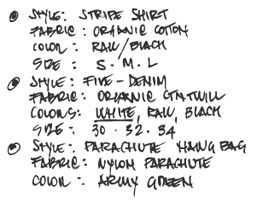 STYLE: STRIPE SHIRT
FABRIC: ORGANIC COTTON
COLOR: RAW/BLACK
SIZE: S.M.L
STYLE: FIVE-DENIM
FABRIC: ORGANIC
COLORS: WHITE, RAW, BLACK
SIZE: 30.32.34
STYLE: PARACHUTE HANG BAG
FABRIC: NYLON PARACHUTE
COLOR: ARMY GREEN